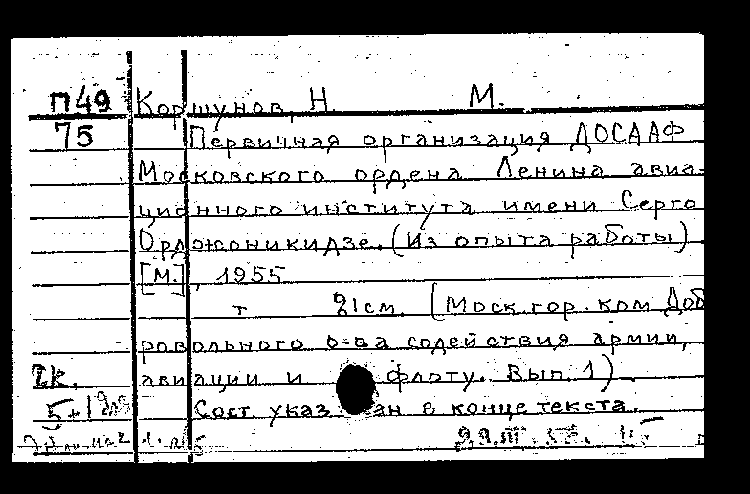 П49 Коршунов, Н. М.
75 Первичная организация ДОСААФ
Московского ордена Ленина авиа-
ционного института имени Серго
Орджоникидзе. (Из опыта работы).
[М.], 1955
т 21см. (Моск. гор. ком Доб
ровольного о-ва содействия армии,
2к. авиации и флоту. Вып. 1).
5+1 Сост указ ан в конце текста.